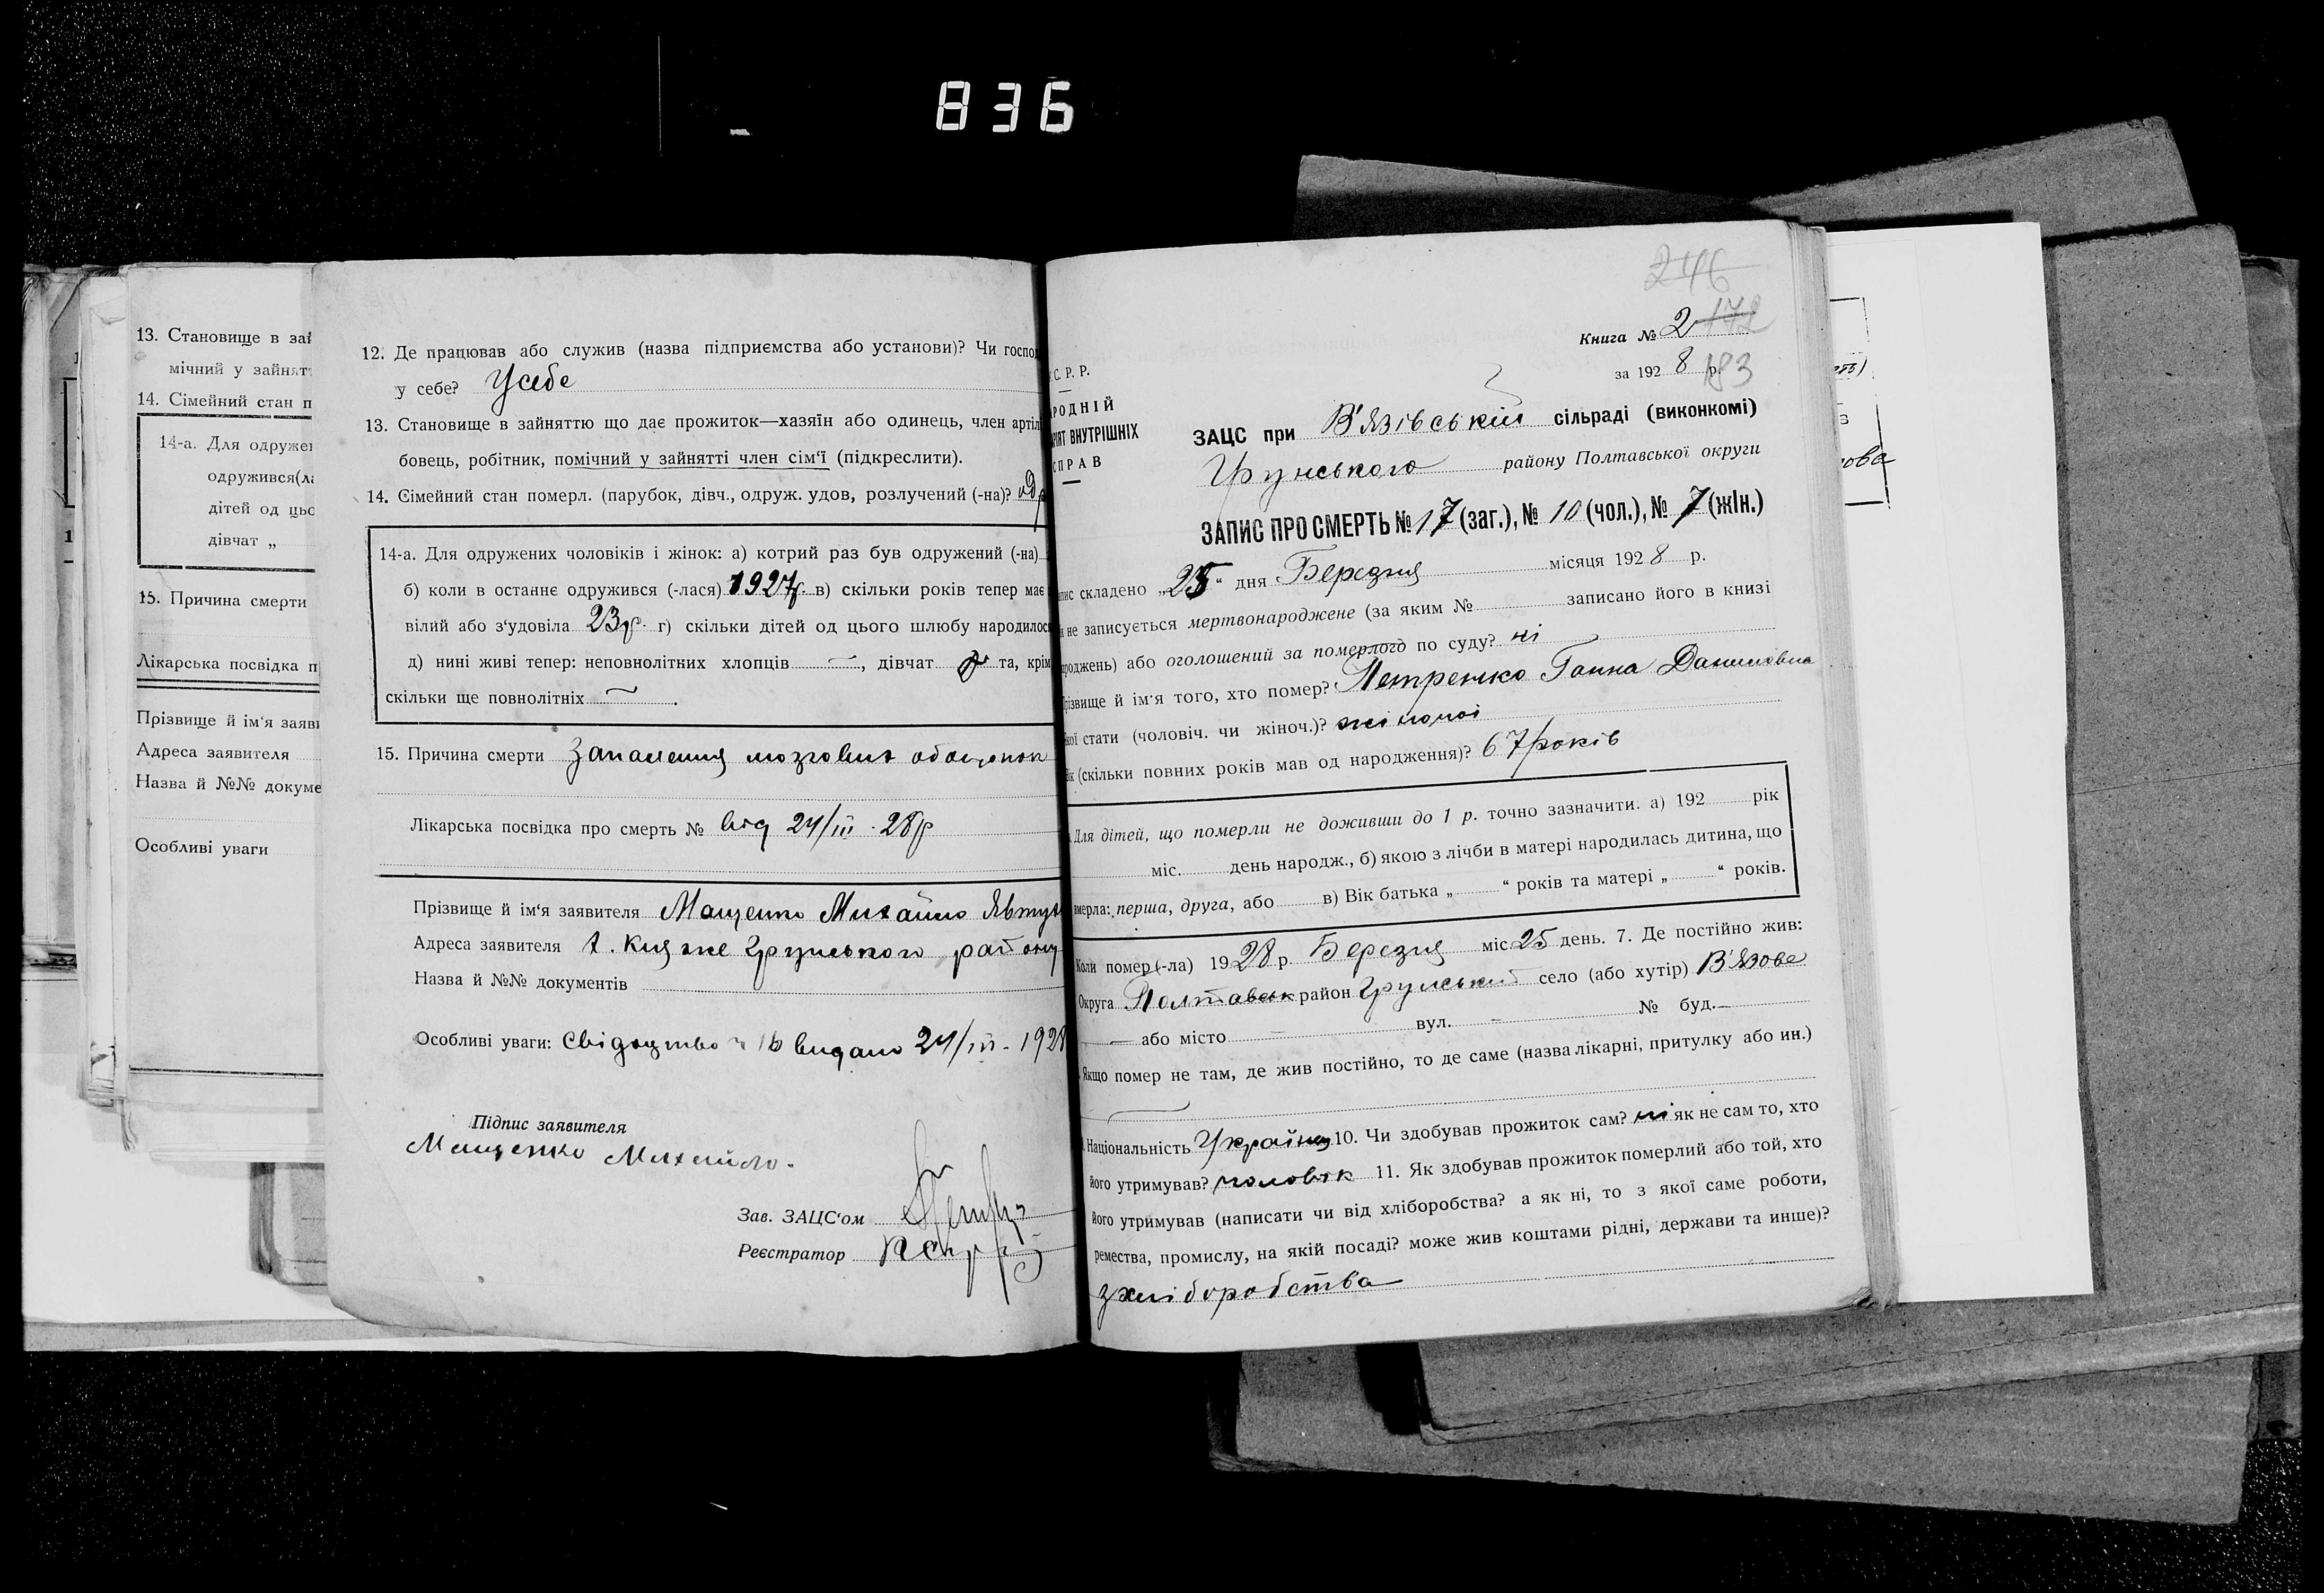 836
13. Становище в зай
мічний у зайнят
14. Сімейний стан п
14-а. Для одружен
одружився(ла
дітей од цьо
дівчат „
15. Причина смерти
Лікарська посвідка п
Прізвище й ім'я заяви
Адреса заявителя
Назва й №№ докуме
Особливі уваги
12. Де працював або служив (назва підприємства або установи)? Чи господ
у себе? У себе
13. Становище в зайняттю що дає прожиток—хазяїн або одинець, член артіл
бовець, робітник, помічний у зайнятті член сім'ї (підкреслити).
14. Сімейний стан померл. (парубок, дівч., одруж. удов, розлучений (-на)? одр
14-а. Для одружених чоловіків і жінок: а) котрий раз був одружений (-на)
б) коли в останнє одружився (-лася) 1927р. в) скільки років тепер має
вілий або з'удовіла 23р. г) скільки дітей од цього шлюбу народилося
д) нині живі тепер: неповнолітніх хлопців —, дівчат та, крім
скільки ще повнолітніх — .
15. Причина смерти Запалення мозгових оболонок
Лікарська посвідка про смерть № від 24/III 28р
Прізвище й ім'я заявителя Мащенко Михайло Явтух
Адреса заявителя х. Княже Грунського району
Назва й №№ документів
Особливі уваги: Свідоцтво ч 16 видано 24/III - 1928
Підпис заявителя
Мащенко Михайло.
Зав. ЗАЦС'ом
Реєстратор
246
Книга № 2 172
за 192 8 р. 183
С. Р. Р.
РОДНІЙ
РІЯТ ВНУТРІШНІХ
СПРАВ
ЗАЦС при В'язівській сільраді (виконкомі)
Грунського району Полтавської округи
ЗАПИС ПРО СМЕРТЬ № 17 (заг.), № 10 (чол.), № 7 (жін.)
пис складено „25“ дня Березня місяця 192 8 р.
и не записується мертвонароджене (за яким № записано його в книзі
роджень) або оголошений за померлого по суду? ні
різвище й ім'я того, хто помер? Петренко Ганна Даниловна
кої стати (чоловіч. чи жіноч.)? жіночої
ік (скільки повних років мав од народження)? 67 років
Для дітей, що померли не доживши до 1 р. точно зазначити: а) 192 рік
міс. день народж., б) якою з лічби в матері народилась дитина, що
вмерла: перша, друга, або в) Вік батька „ “ років та матері „ “ років.
Коли помер (-ла) 1928 р. Березня міс 25 день. 7. Де постійно жив:
Округа Полтавськ район Грунський село (або хутір) В'язове
— або місто — вул. — № буд. —
Якщо помер не там, де жив постійно, то де саме (назва лікарні, притулку або ин.)
Національність Україн 10. Чи здобував прожиток сам? ні як не сам то, хто
його утримував? чоловік 11. Як здобував прожиток померлий або той, хто
його утримував (написати чи від хліборобства? а як ні, то з якої саме роботи,
ремества, промислу, на якій посаді? може жив коштами рідні, держави та инше)?
з хліборобства